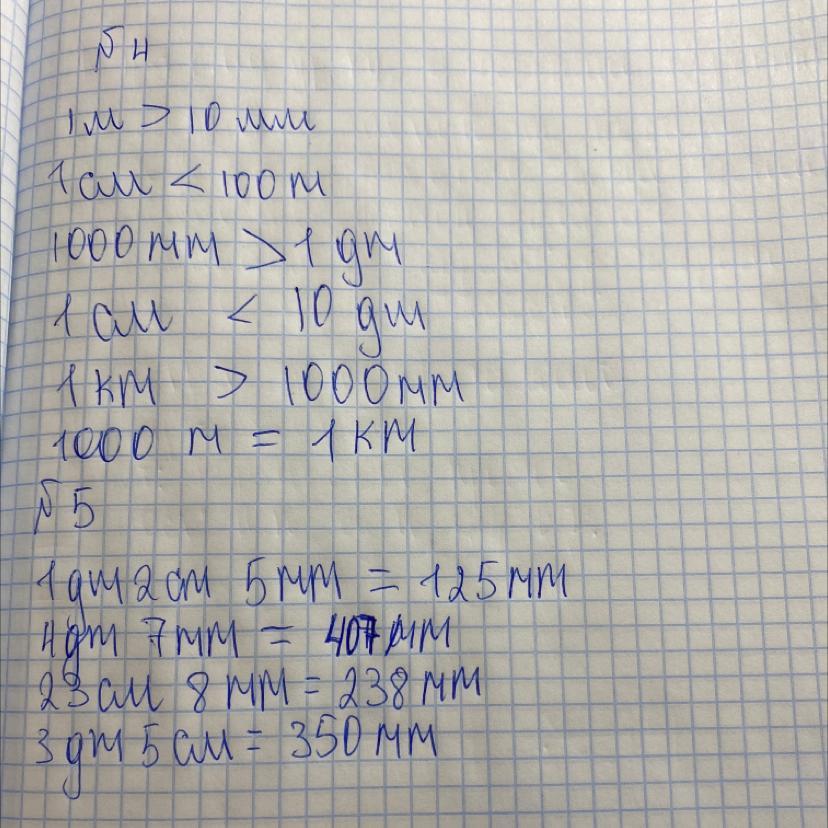 № 4
1м > 10 мм
1 см < 100 м
1000 мм > 1 дм
1 см < 10 дм
1 км > 1000 мм
1000 м = 1 км
№ 5
1 дм 2 см 5 мм = 125 мм
4 дм 7 мм = 407 мм
23 см 8 мм = 238 мм
3 дм 5 см = 350 мм